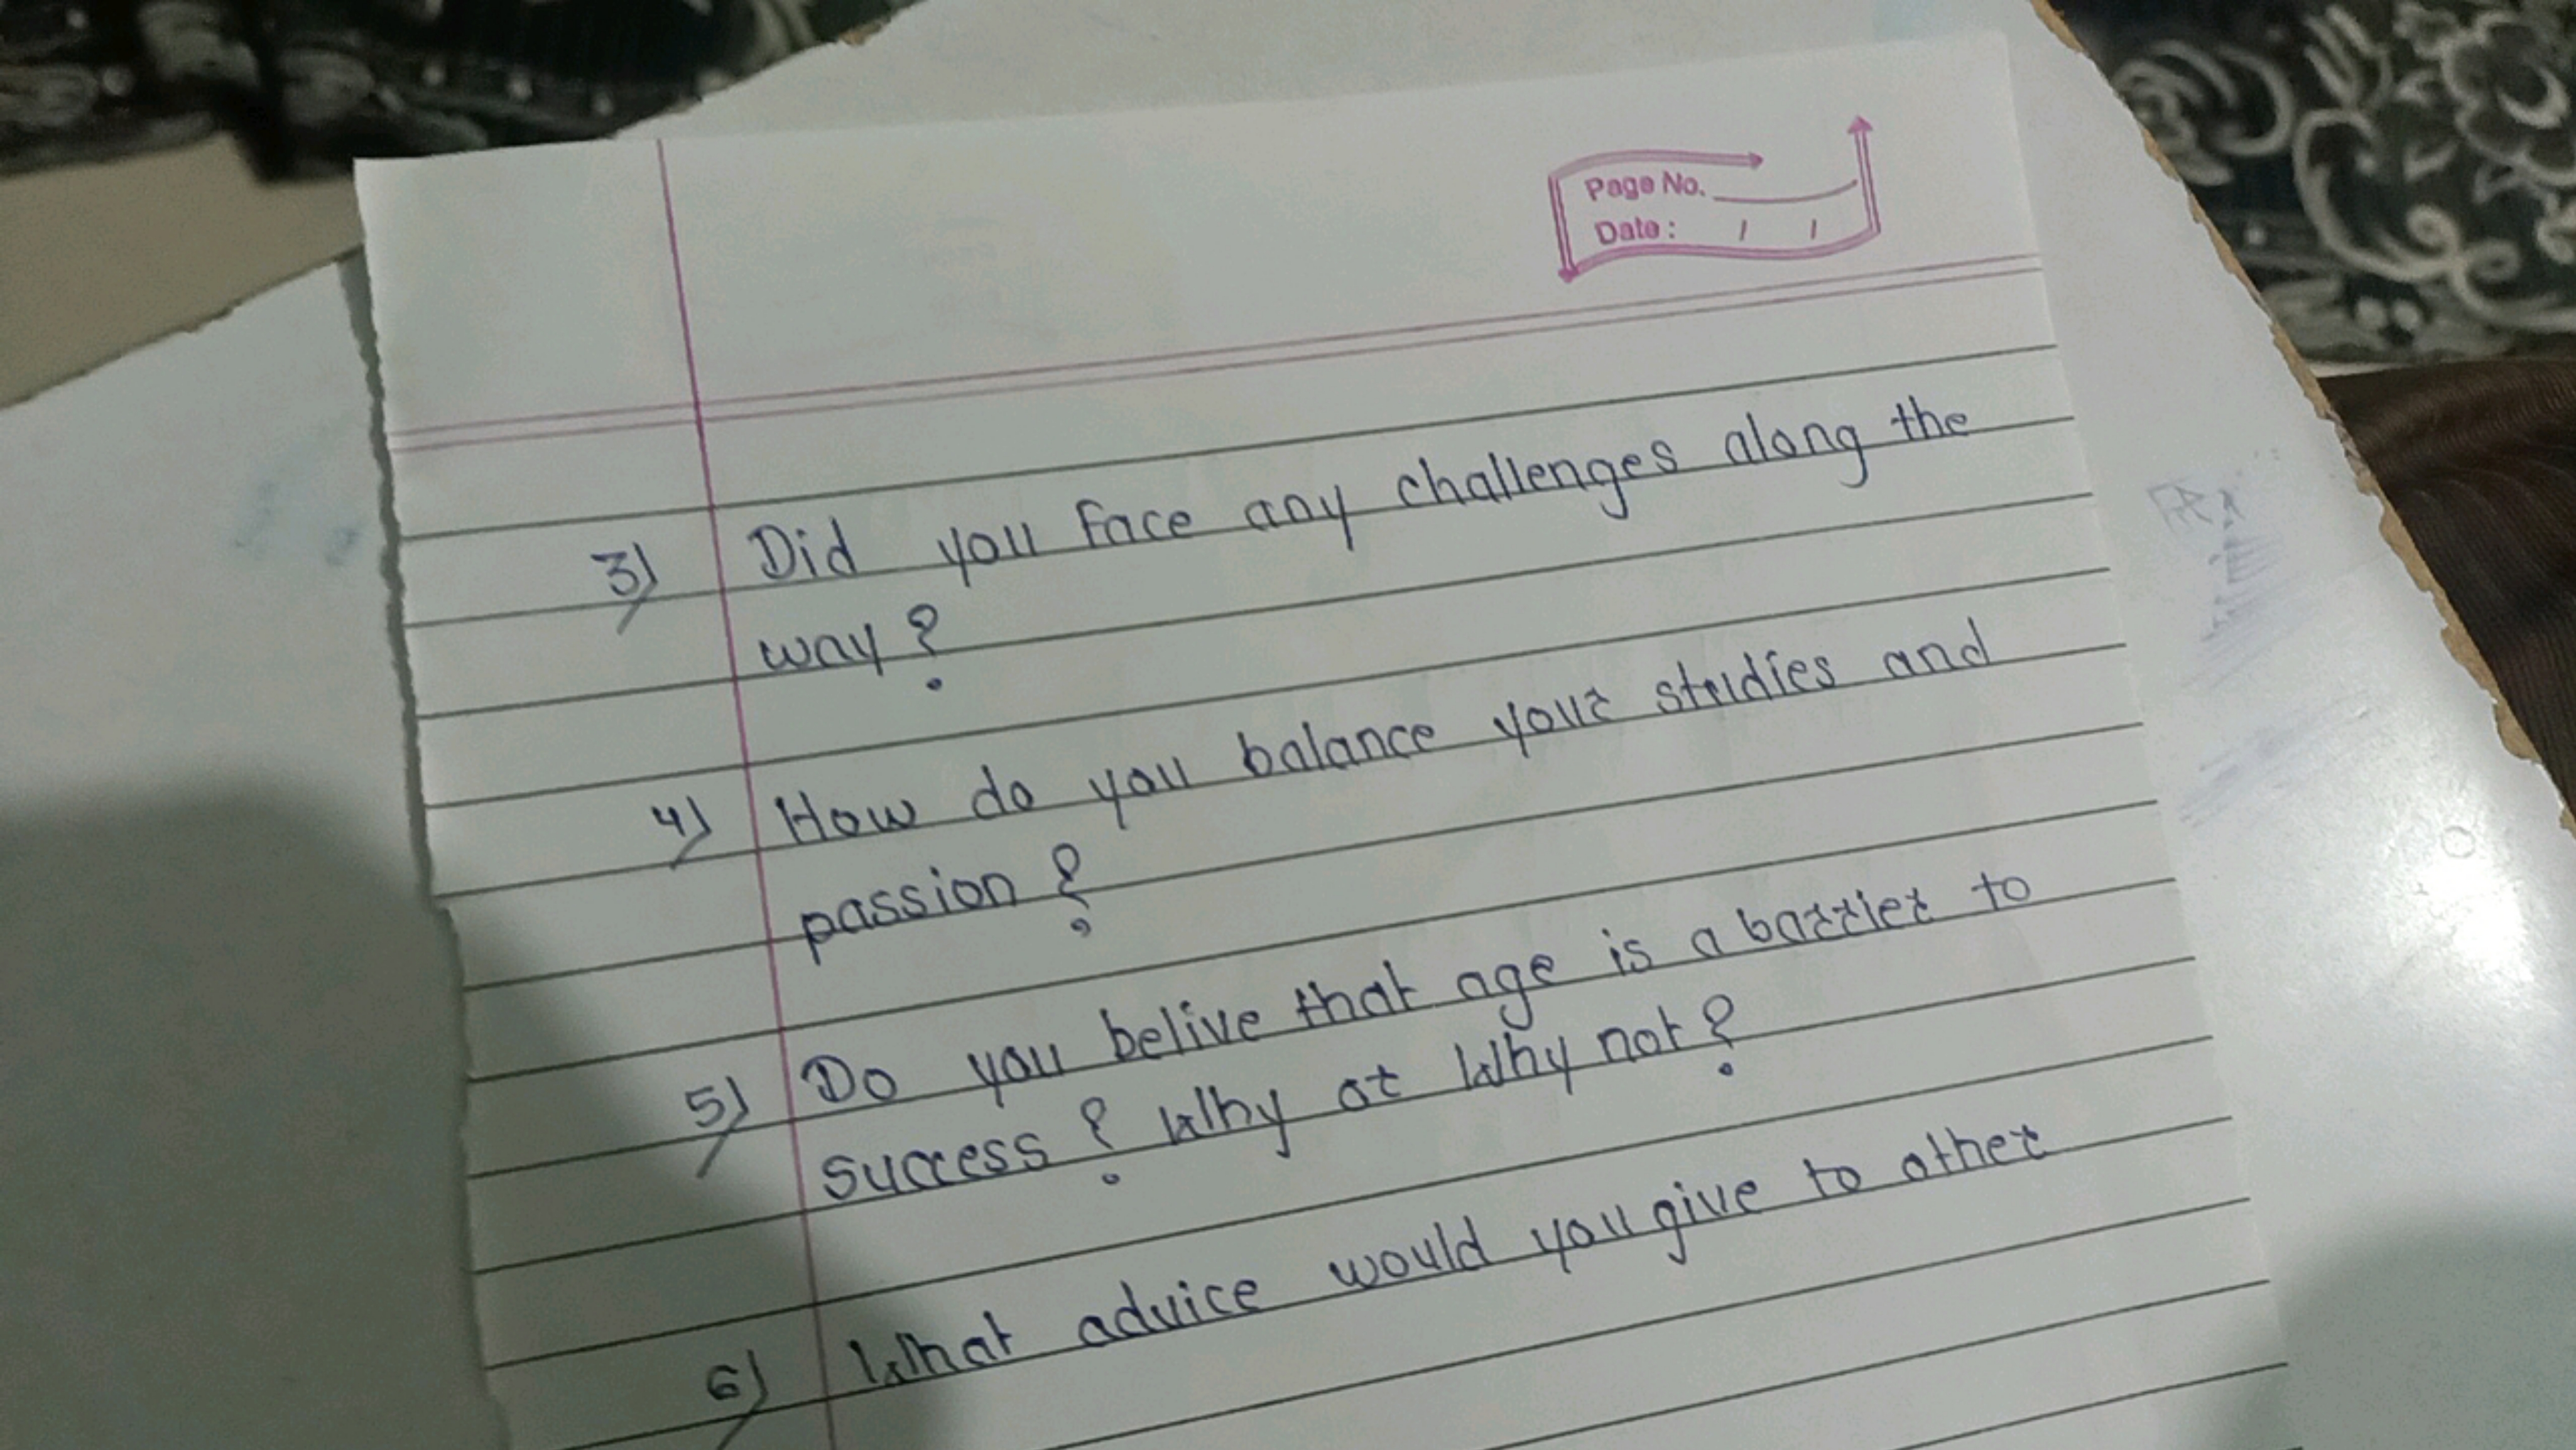 Page No.
Date: / /
3) Did you face any challenges along the
way?
4) How do you balance your studies and
passion?
5) Do you belive that age is a barrier to
success? Why or Why not?
6) What advice would you give to other